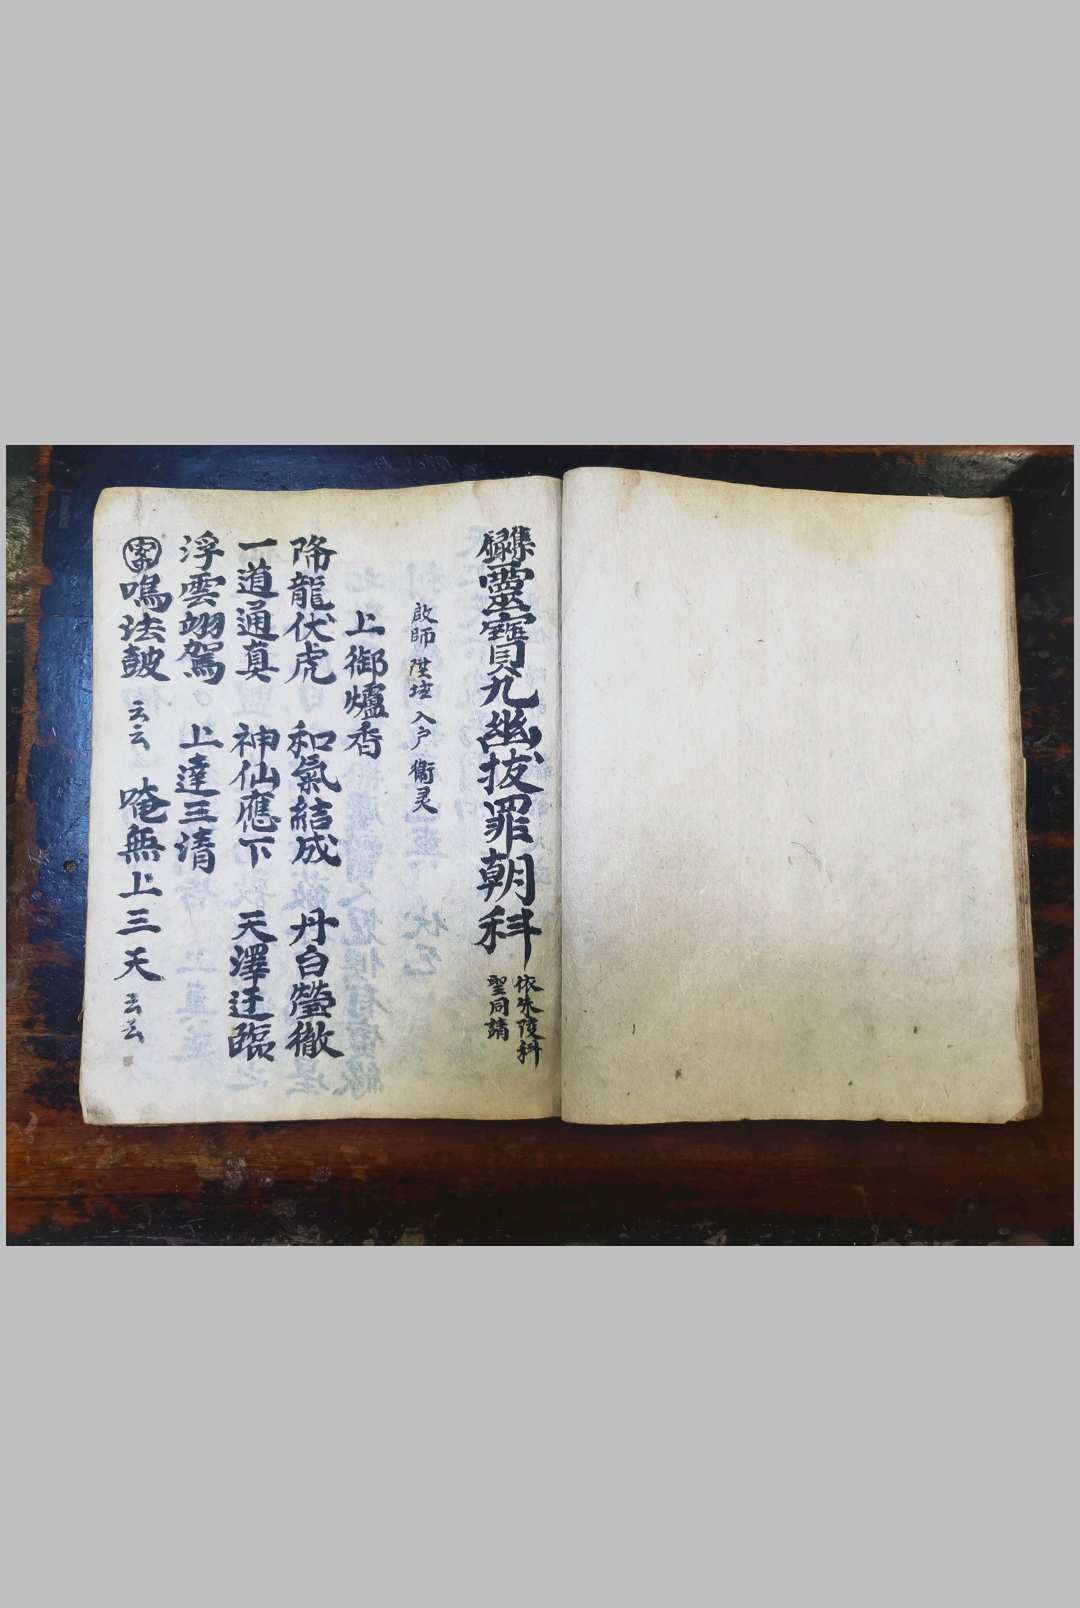 靈寶九幽拔罪朝科 依朱陵科
聖同請
啟師 陞壇 入户 衛灵
上御爐香
降龍伏虎 和氣結成 丹白瑩徹
一道通真 神仙應下 天澤迂臨
浮雲翊駕 上達三清
鳴法鼓 云云 唵無上三天 云云